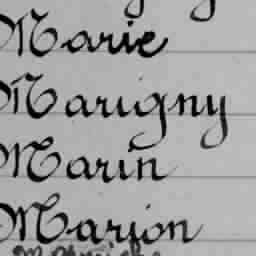 Marie
Marigny
Marin
Marion